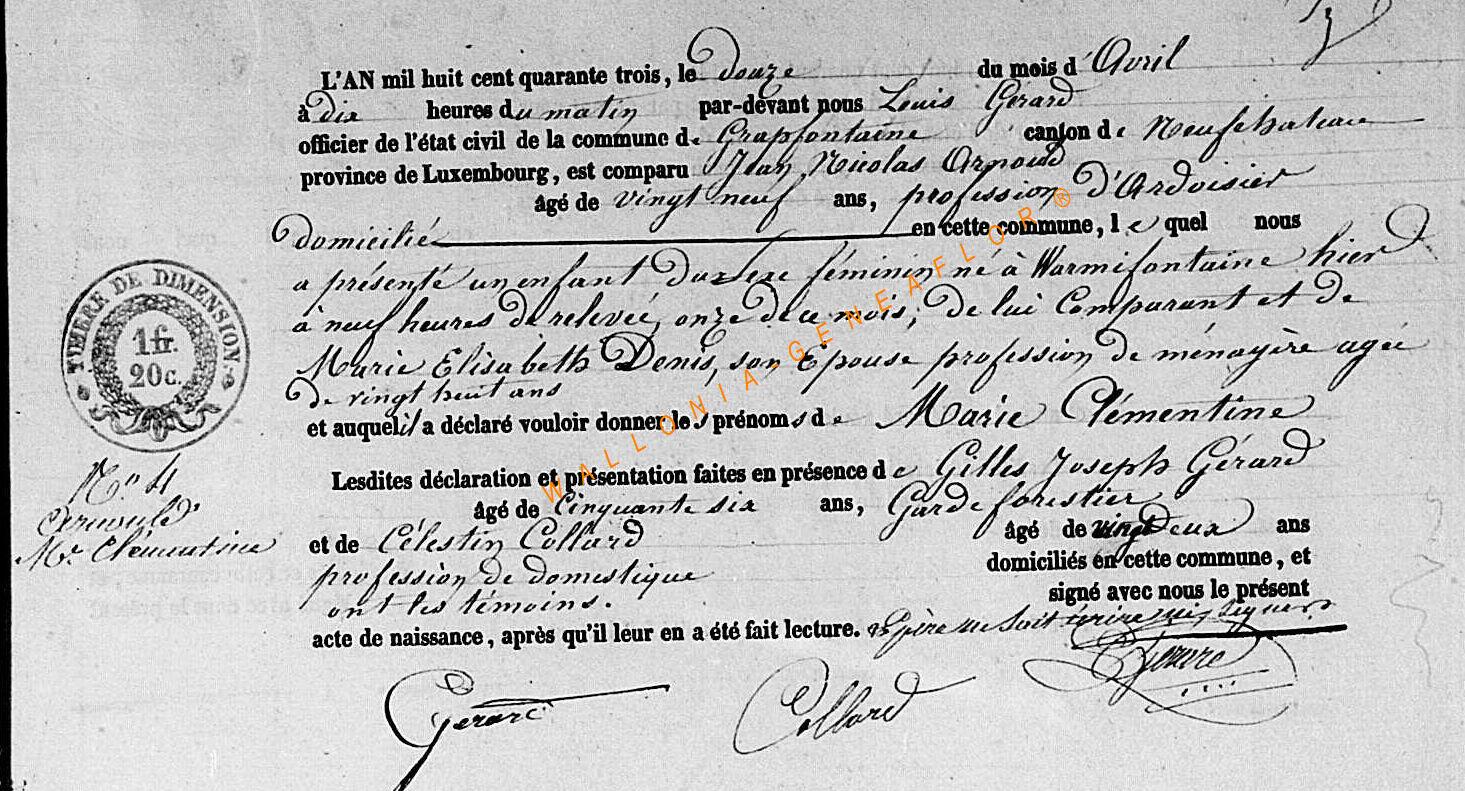 L'AN mil huit cent quarante trois, le douze du mois d'Avril
à dix heures du matin par-devant nous Louis Gérard
officier de l'état civil de la commune de Grapfontaine canton de Neufchateau
province de Luxembourg, est comparu Jean Nicolas Arnould
âgé de vingt neuf ans, profession d'Ardoisier
domicilié en cette commune, le quel nous
a présenté un enfant du sexe féminin né à Warmifontaine hier
à neuf heures de relevée, onze de ce mois, de lui Comparant et de
Marie Elisabeth Denis, son Epouse profession de ménagère agée
de vingt huit ans
et auquel il a déclaré vouloir donner les prénoms de Marie Clémentine
Lesdites déclaration et présentation faites en présence de Gilles Joseph Gérard
âgé de Cinquante six ans, Garde forestier
et de Célestin Collard âgé de vingt Deux ans
profession de domestique domiciliés en cette commune, et
ont les témoins. signé avec nous le présent
acte de naissance, après qu'il leur en a été fait lecture. le père ne sait écrire ni signer
Gerard Collard Gerard
TIMBRE DE DIMENSION
1 fr.
20 c.
N° 4
Arnould
Me Clémentine
WALLONIA-GENEAFLOR®